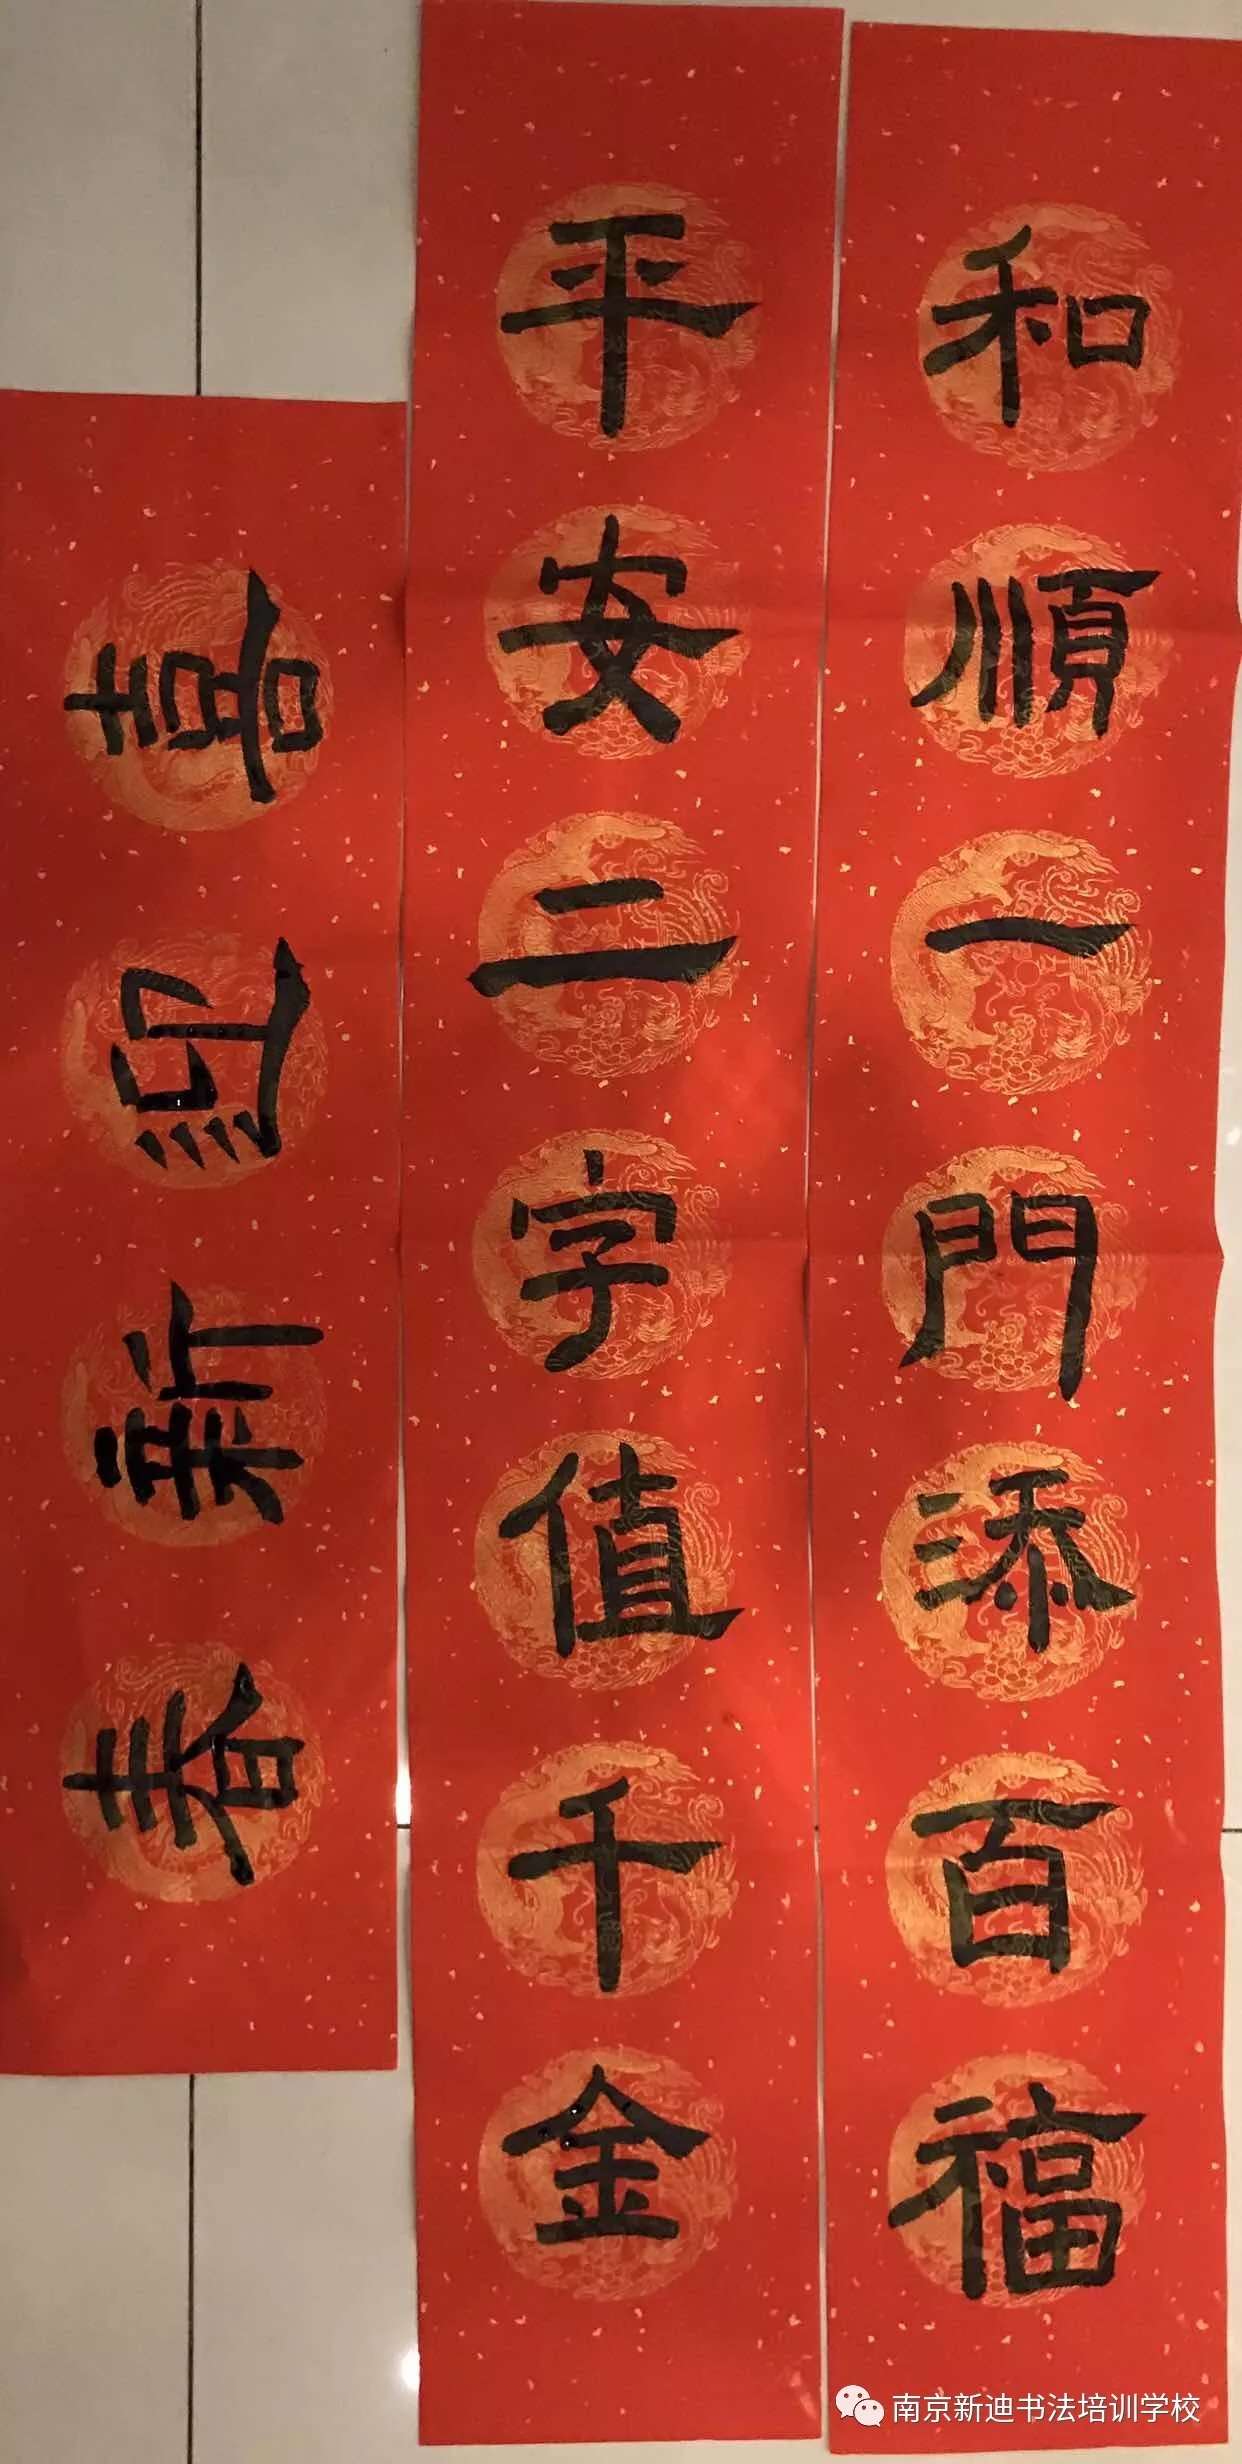 和順一門添百福
平安二字值千金
喜迎新春
南京新迪书法培训学校